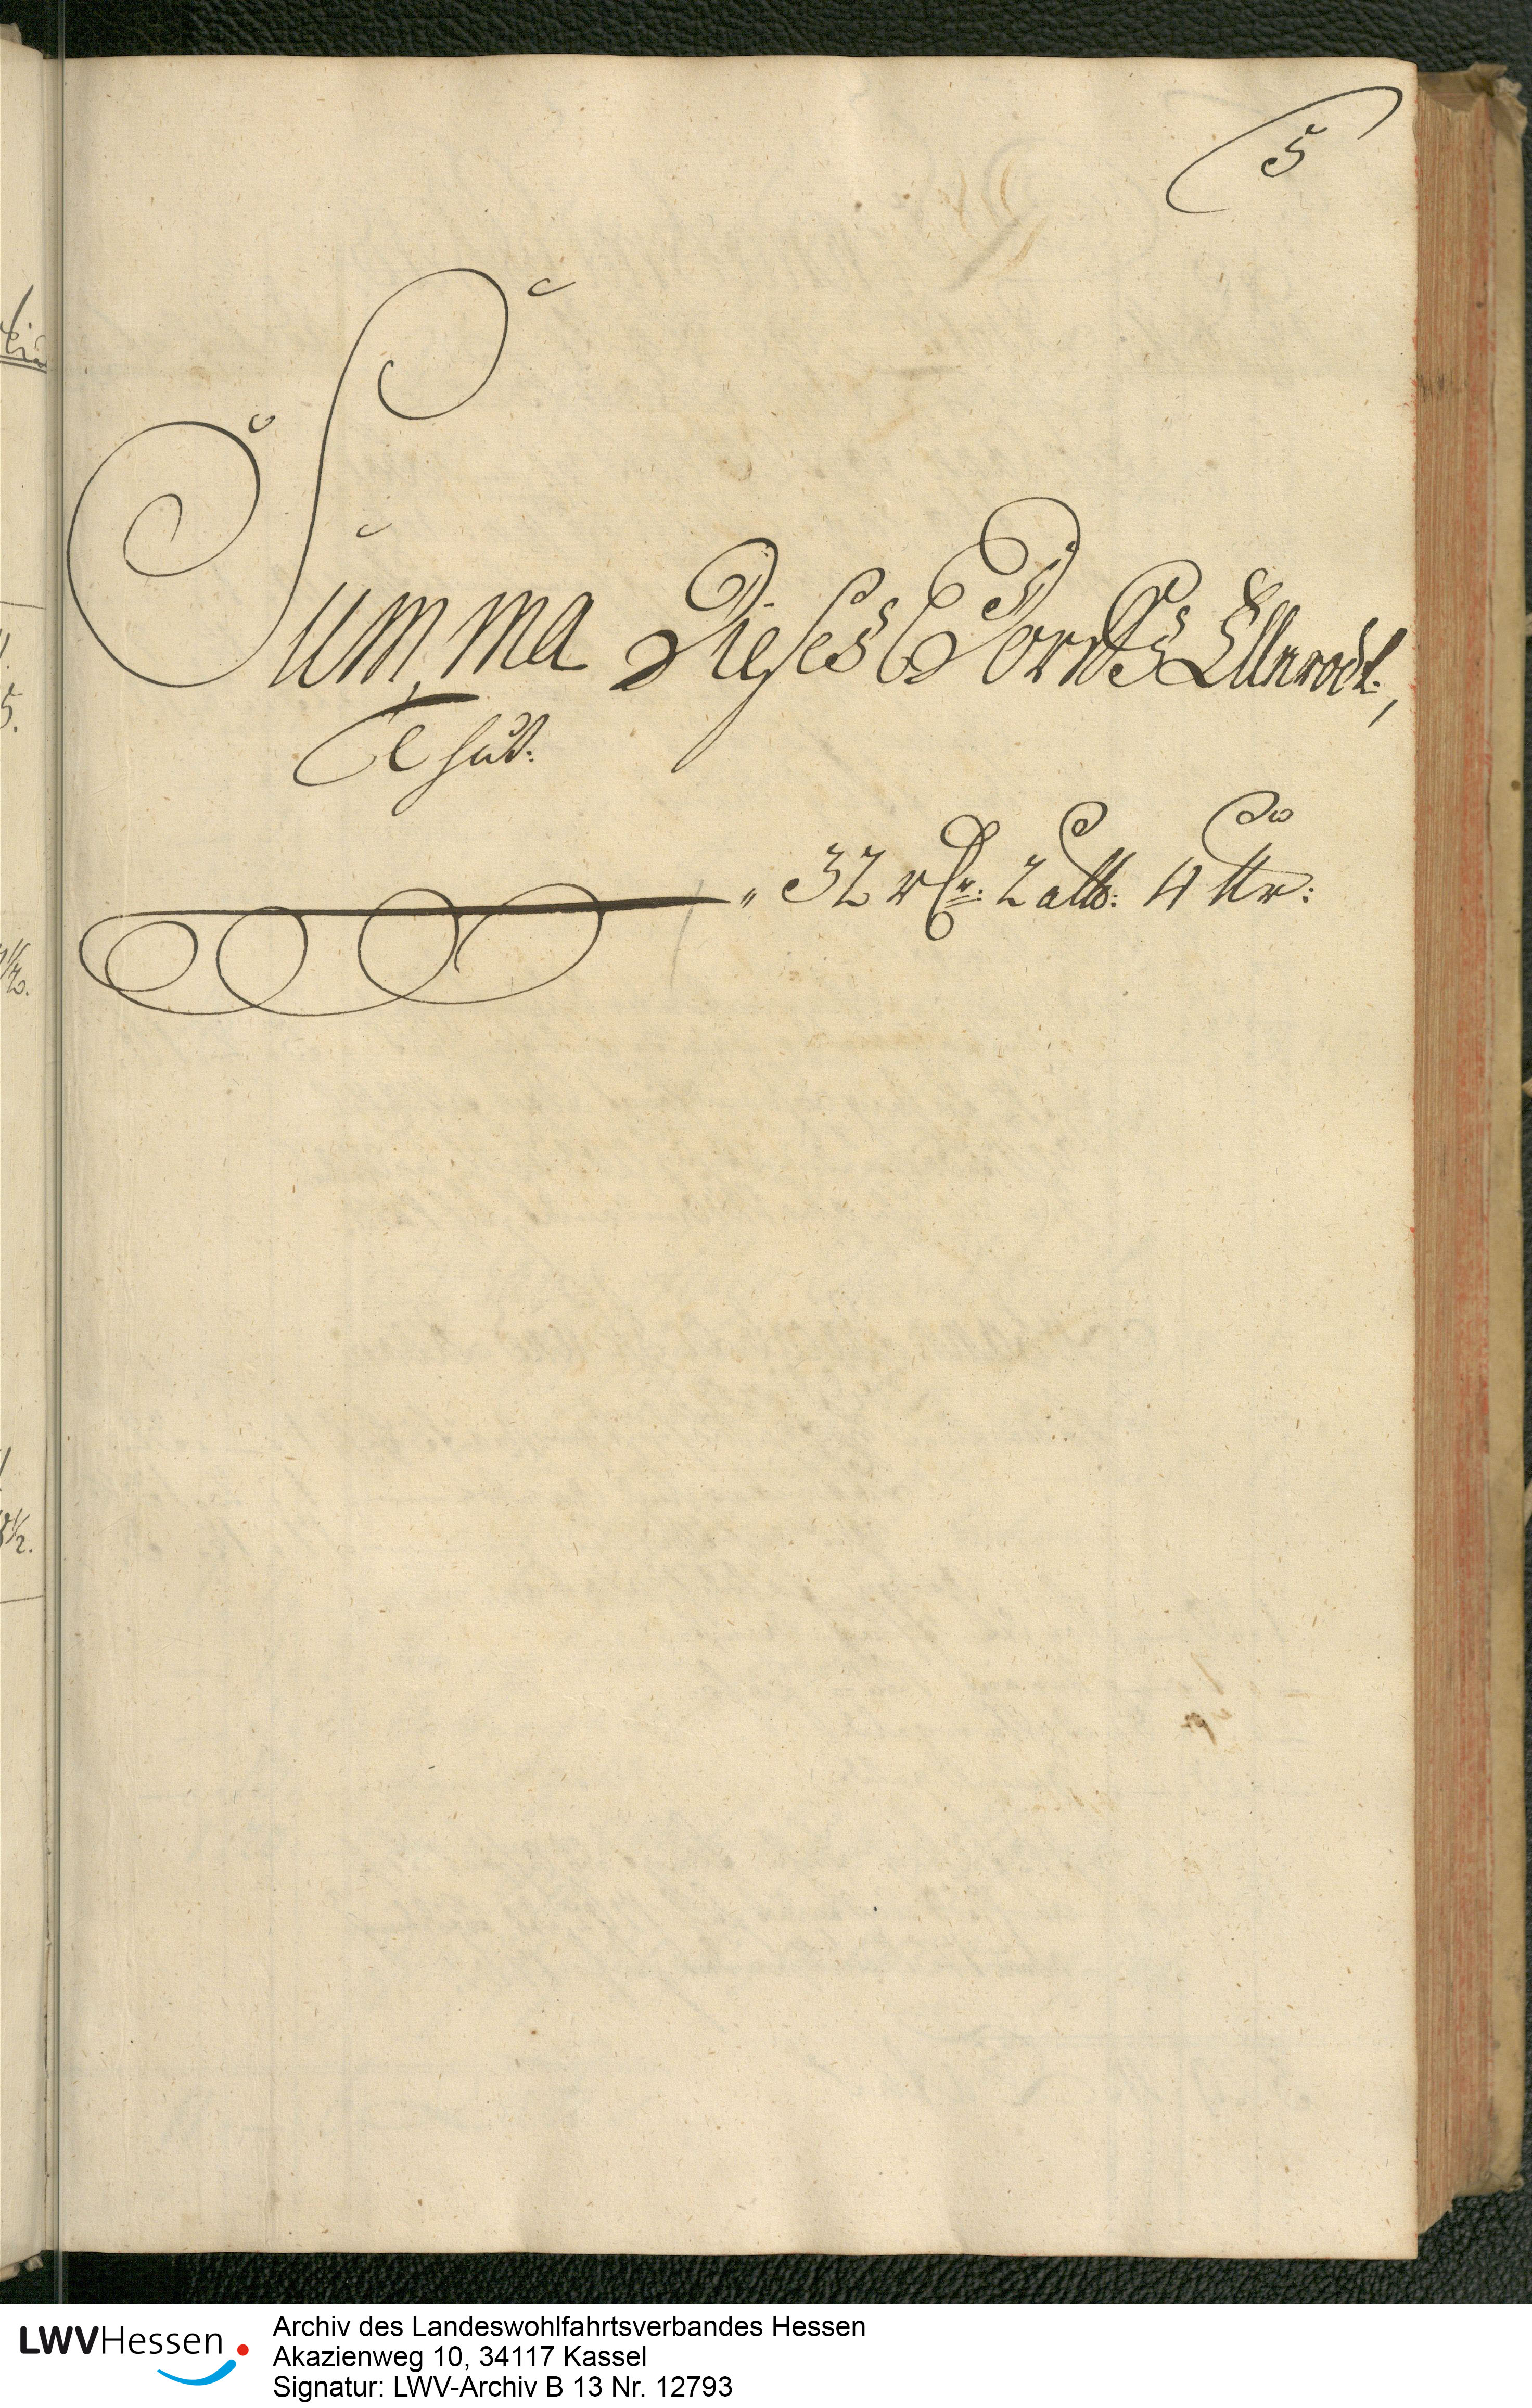 5
Summa Dieses Dorffs Ellnrodt,
Thut:
" 32 rthr: 2 alb: 4 hlr:
LWVHessen
Archiv des Landeswohlfahrtsverbandes Hessen
Akazienweg 10, 34117 Kassel
Signatur: LWV-Archiv B 13 Nr. 12793